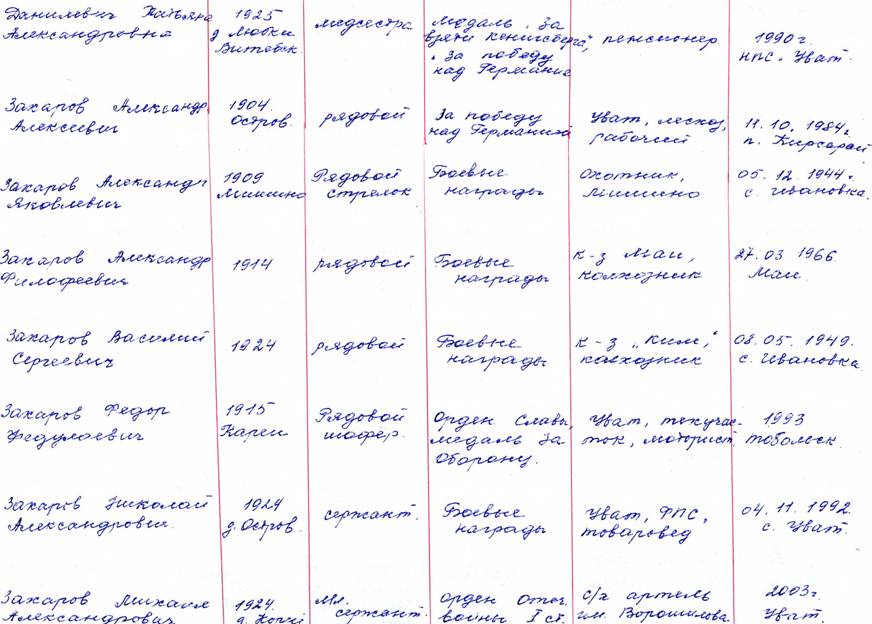 Данилевич Татьяна
Александровна
1925
д. Любки
Витебск.
медсестра
Медаль „За
взятие Кенигсберга",
„За победу
над Германией
пенсионер
1990 г.
НПС. Уват.
Захаров Александр
Алексеевич
1904.
Остров.
рядовой
За победу
над Германией
Уват, лесхоз,
рабочий
11. 10. 1984 г.
п. Кирсарай
Захаров Александр
Яковлевич
1909
Мишино
Рядовой
стрелок
Боевые
награды
Охотник,
Мишино
05. 12. 1944 г.
с. Ивановка.
Захаров Александр
Филофеевич
1914
рядовой
Боевые
награды
к-з Маи,
колхозник
27. 03 1966
Маи.
Захаров Василий
Сергеевич
1924
рядовой
Боевые
награды
к-з „Ким",
колхозник
08. 05. 1949.
с. Ивановка.
Захаров Федор
Федулаевич
1915
Рядовой
шофер.
Орден Славы,
медаль За
Оборону.
Уват, техучас-
ток, моторист.
1993
Тобольск.
Захаров Николай
Александрович.
1924
д. Остров.
сержант.
Боевые
награды
Уват, РПС,
товаровед
04. 11. 1992.
с. Уват.
Захаров Михаил
Александрович
1924.
д.
Мл.
сержант.
орден Отеч.
войны I ст.
с/х артель
им. Ворошилова
2003 г.
Уват.